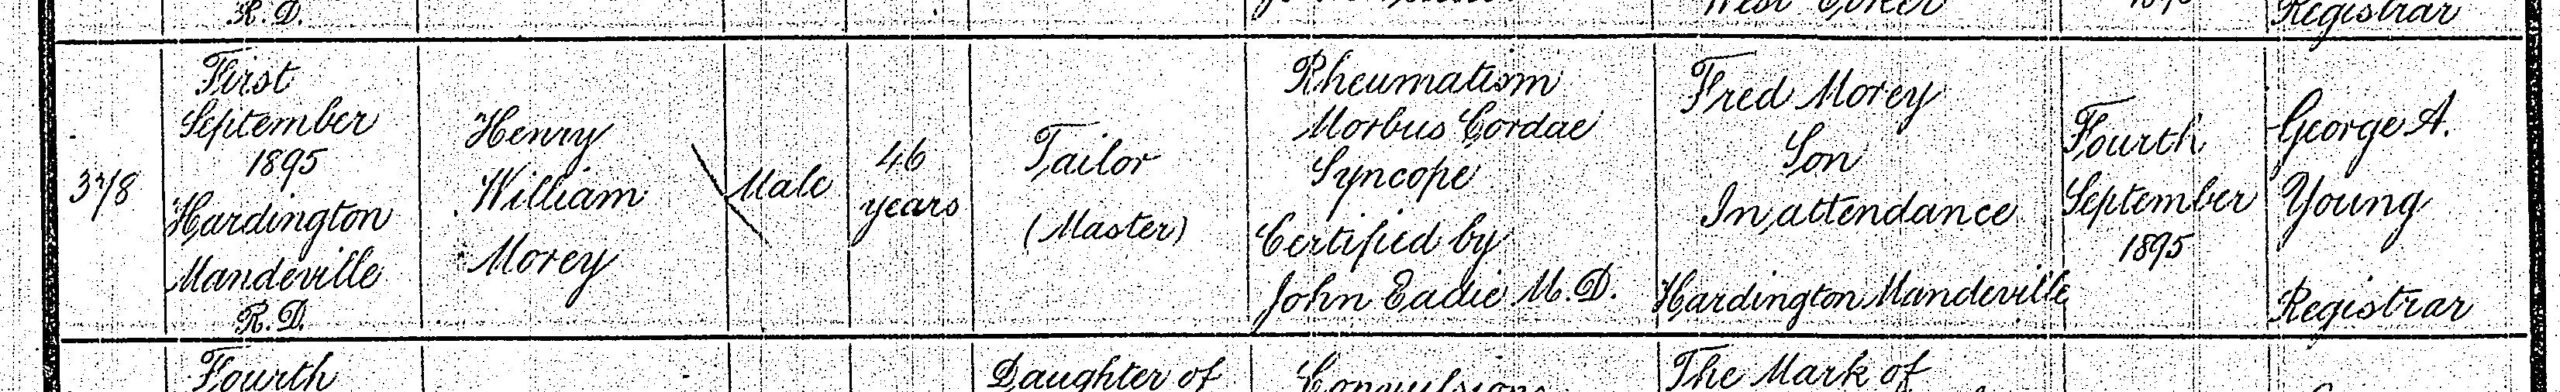 R.D.
West Coker
1895
Registrar
378
First
September
1895
Hardington
Mandeville
R.D.
Henry
William
Morey
Male
46
years
Tailor
(Master)
Rheumatism
Morbus Cordae
Syncope
Certified by
John Eadie M.D.
Fred Morey
Son
In attendance
Hardington Mandeville
Fourth
September
1895
George A.
Young
Registrar
Fourth
Daughter of
Convulsions
The Mark of